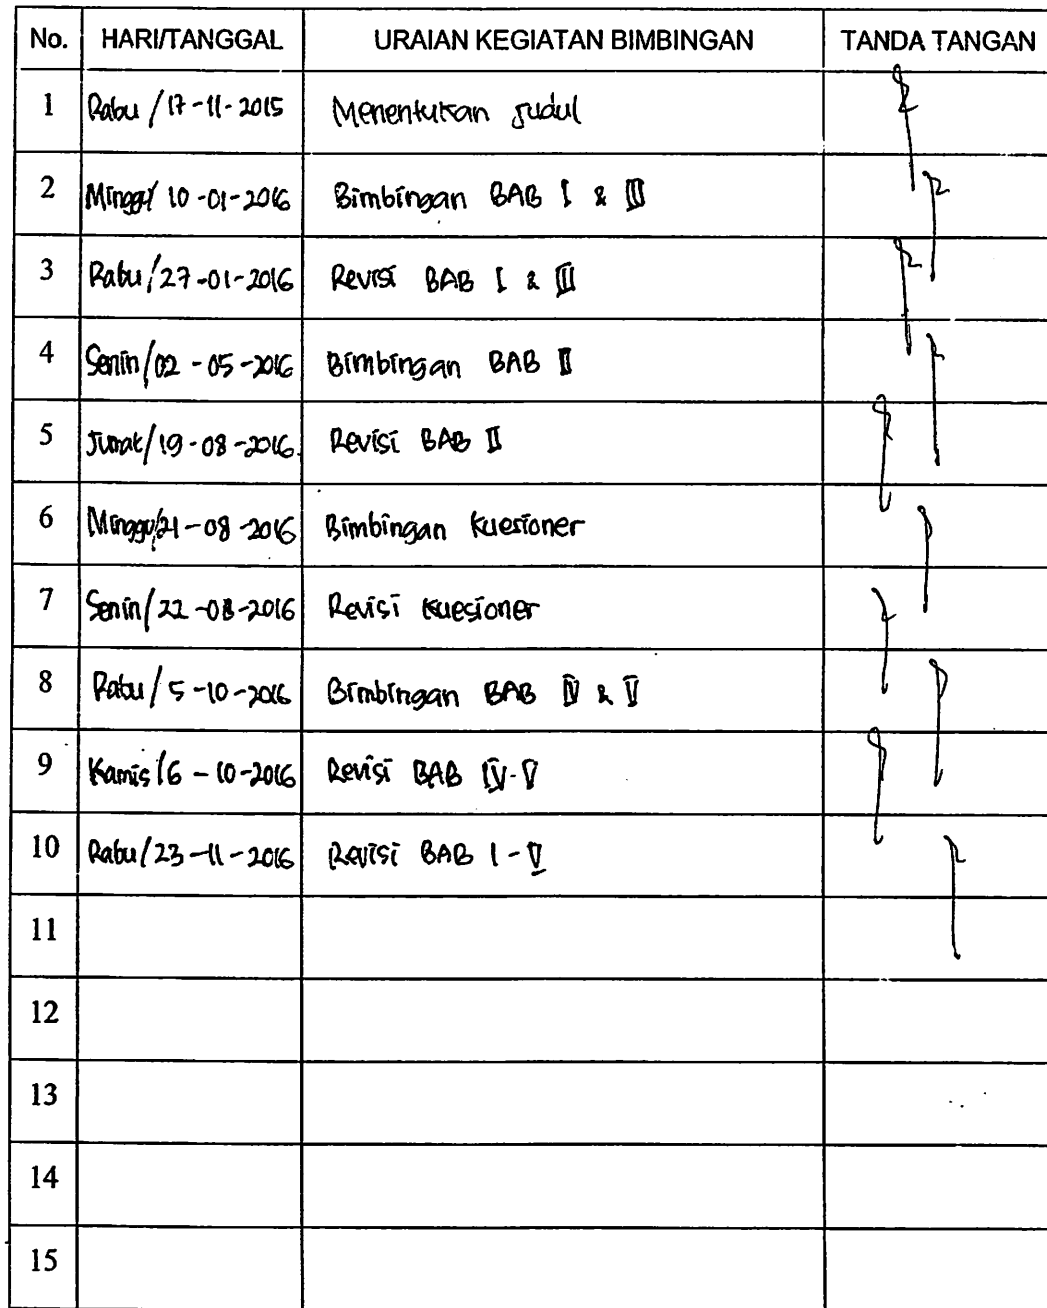 No. HARI/TANGGAL URAIAN KEGIATAN BIMBINGAN TANDA TANGAN
1 Rabu / 17-11-2015 Menentukan Judul
2 Minggu/ 10-01-2016 Bimbingan BAB I & III
3 Rabu/27-01-2016 Revisi BAB I & III
4 Senin/02-05-2016 Bimbingan BAB II
5 Jumat/19-08-2016. Revisi BAB II
6 Minggu/21-08-2016 Bimbingan Kuesioner
7 Senin/22-08-2016 Revisi Kuesioner
8 Rabu/5-10-2016 Bimbingan BAB IV & V
9 Kamis/6-10-2016 Revisi BAB IV-V
10 Rabu/23-11-2016 Revisi BAB I-V
11
12
13
14
15